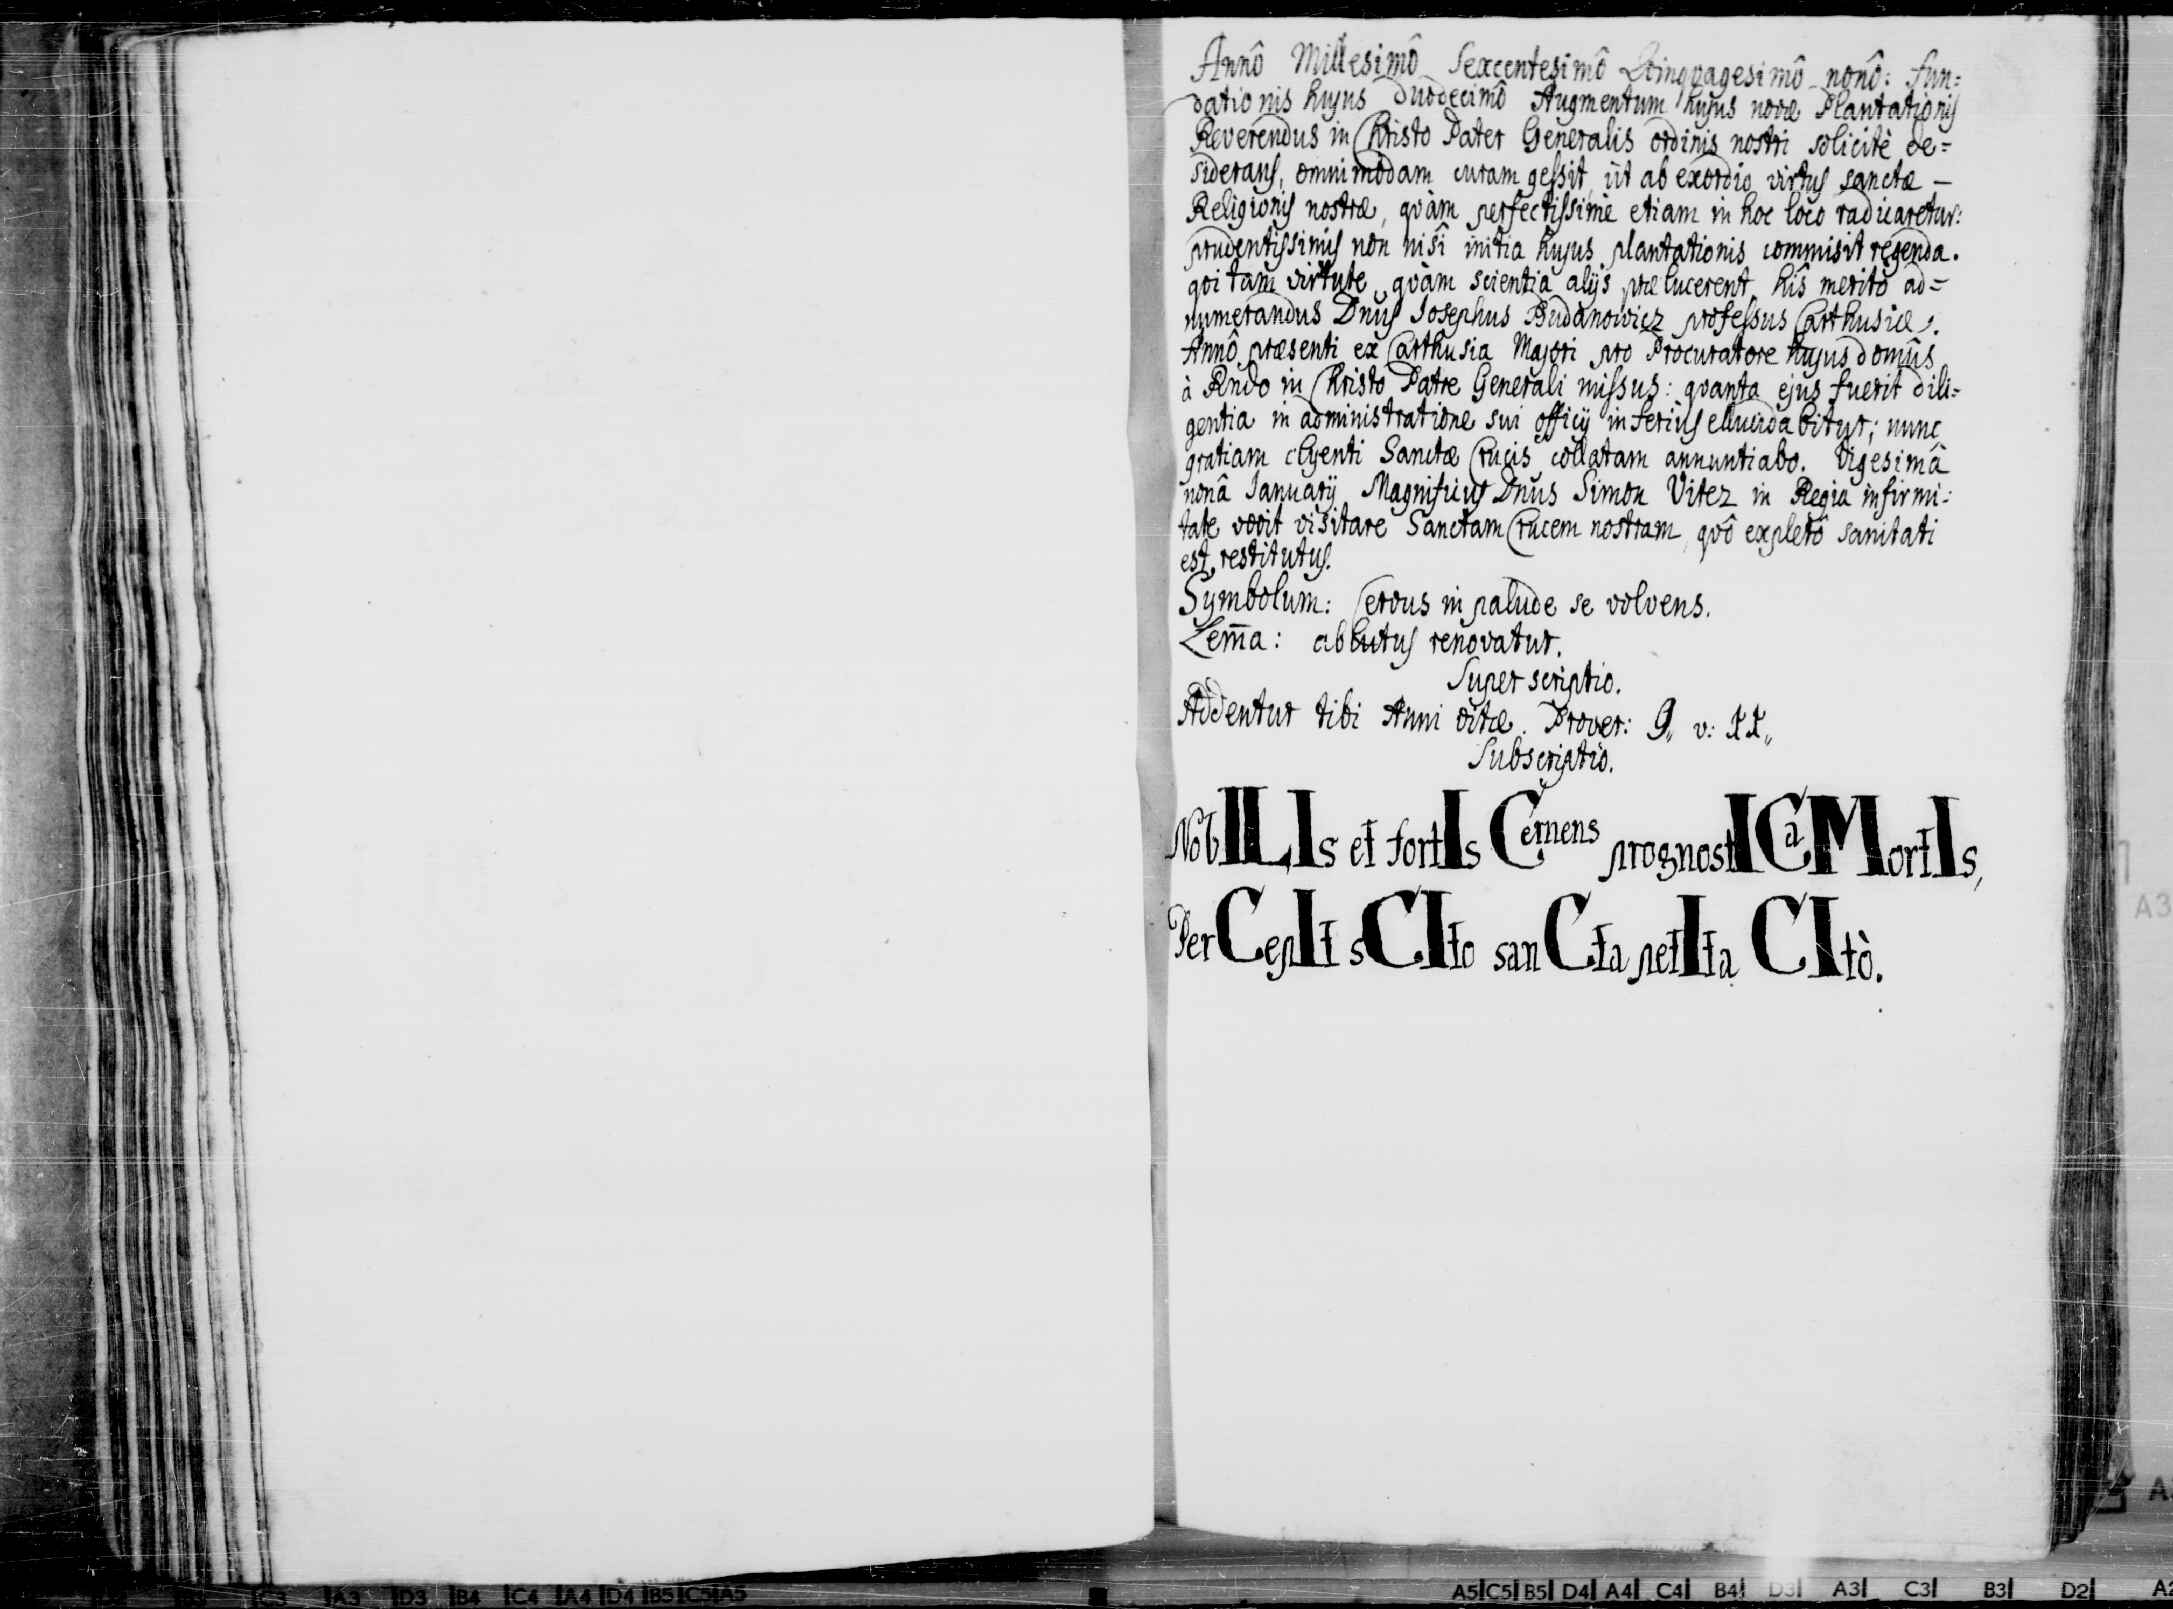 Annô Millesimô Sexcentesimô Qvinqvagesimô nonô: fun=
dationis hujus duodecimô Augmentum hujus novæ Plantationis
Reverendus in Christo Pater Generalis ordinis nostri solicitè de=
siderans, omnimodam curam gessit, ùt ab exordio virtus sanctæ –
Religionis nostræ, qvàm perfectissimè etiam in hoc loco radicaretur:
prudentissimis non nisî initia hujus plantationis commisit regenda.
qvi tam virtute, qvàm scientia alijs præ lucerent, hîs meritò ad=
numerandus Dnus Josephus Budanowicz professus Carthusiæ.
Annô præsenti ex Carthusia Majori pro Procuratore hujus domûs
à Rndo in Christo Patre Generali missus: qvanta ejus fuerit dili=
gentia in administratione sui officij inferiùs ellucidabitur; nunc
gratiam clyenti Sanctæ Crucis collatam annuntiabo. Vigesimâ
nonâ Januarij Magnificus Dnus Simon Vitez in Regia infirmi=
tate vovit visitare Sanctam Crucem nostram, qvô expletô sanitati
est restitutus.
Symbolum: Cervus in palude se volvens.
Lem̄a: ablutus renovatur.
Superscriptio.
Addentur tibi Anni vitæ. Prover: 9,, v: XX,,
Subscriptio.
NobILIs et fortIs Cernens prognostICa MortIs,
PerCepIt sCIto sanCta petIta CItò.
A3
A3 D3 B4 C4 A4 D4 B5 C5 A5
A5 C5 B5 D4 A4 C4 B4 D3 A3 C3 B3 D2 A2